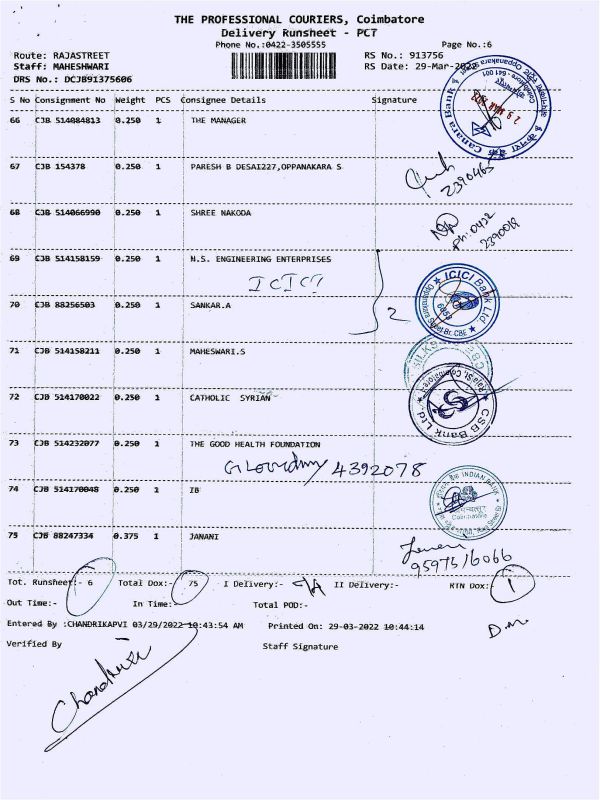 THE PROFESSIONAL COURIERS, Coimbatore
Delivery Runsheet - PCT
Phone No.:0422-3505555 Page No.:6
Route: RAJASTREET RS No.: 913756
Staff: MAHESHWARI RS Date: 29-Mar-2022
DRS No.: DCJB91375606
S No Consignment No Weight PCS Consignee Details Signature
66 CJB 514084813 0.250 1 THE MANAGER
Canara Bank
67 CJB 154378 0.250 1 PARESH B DESAI227,OPPANAKARA S
2390465
68 CJB 514066990 0.250 1 SHREE NAKODA
Ph: 0422
2390018
69 CJB 514158159 0.250 1 N.S. ENGINEERING ENTERPRISES
ICICI
ICICI Bank Ltd
70 CJB 88256503 0.250 1 SANKAR.A
2
71 CJB 514158211 0.250 1 MAHESWARI.S
SILKS
72 CJB 514170022 0.250 1 CATHOLIC SYRIAN
CSB Bank Ltd
73 CJB 514232077 0.250 1 THE GOOD HEALTH FOUNDATION
4392078
74 CJB 514170048 0.250 1 IB
INDIAN BANK
75 CJB 88247334 0.375 1 JANANI
95975/6066
Tot. Runsheet:- 6 Total Dox:- 75 I Delivery:- II Delivery:- RTN Dox:- 1
Out Time:- In Time:- Total POD:-
Entered By :CHANDRIKAPVI 03/29/2022 10:43:54 AM Printed On: 29-03-2022 10:44:14
D.M.
Verified By Staff Signature